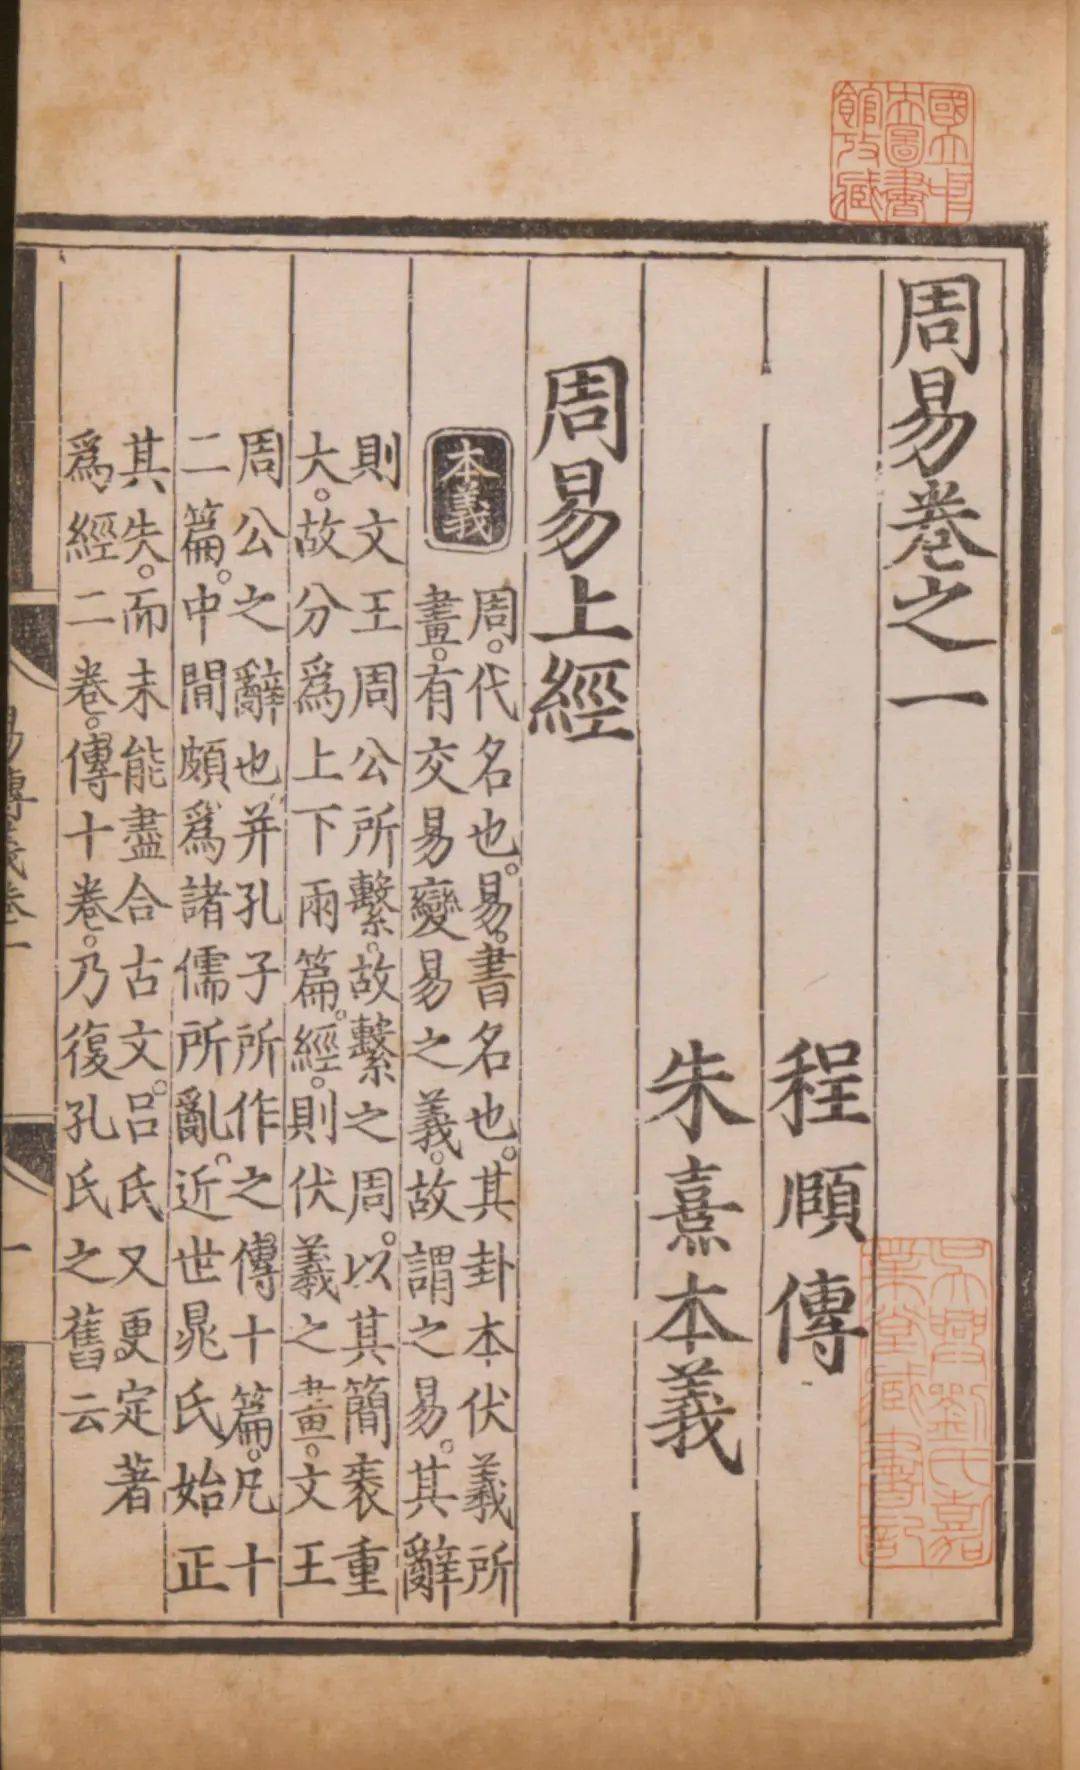 國立中
央圖書
館收藏
周易卷之一
程頤傳
朱熹本義
周易上經
本義
周。代名也。易。書名也。其卦本伏羲所
畫。有交易變易之義。故謂之易。其辭
則文王周公所繫。故繫之周。以其簡袠重
大。故分爲上下兩篇。經。則伏羲之畫。文王
周公之辭也并孔子所作之傳十篇。凡十
二篇。中間頗爲諸儒所亂。近世晁氏始正
其失。而未能盡合古文。呂氏又更定著
爲經二卷。傳十卷。乃復孔氏之舊云
易傳義卷一
一
吳興劉氏嘉
業堂藏書記